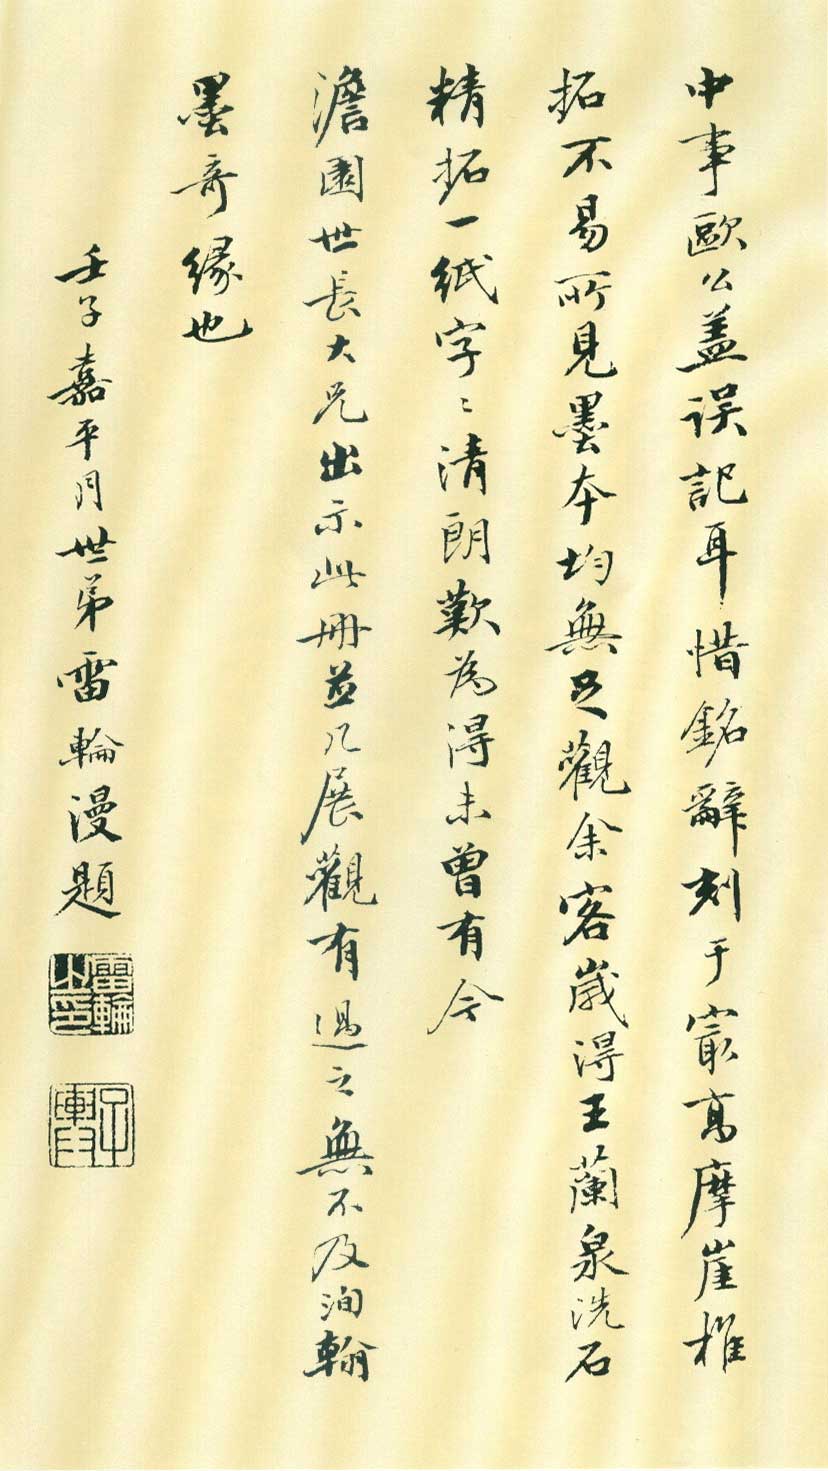 中事歐公蓋误記耳惜銘辭刻于寂高摩崖椎
拓不易所見墨本均無足觀余客歲得王蘭泉洗石
精拓一紙字〻清朗歎為得未曾有今
澹園世長大兄出示此冊並几展觀有過之無不及洵翰
墨奇緣也
壬子嘉平月世弟雷輪漫題
雷輪之印